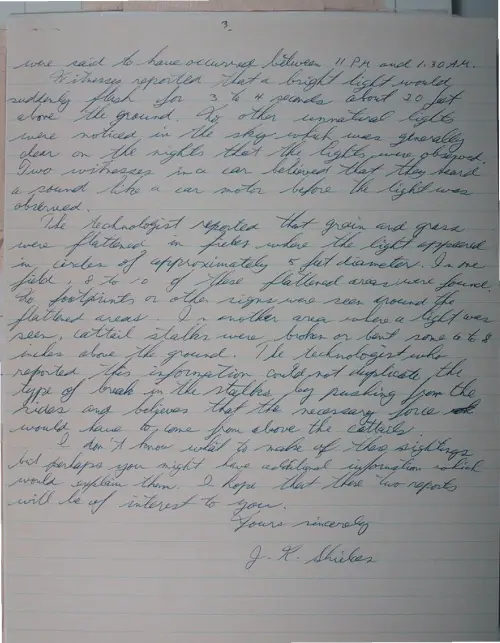 3.
were said to have occurred between 11 P.M. and 1:30 A.M.
Witnesses reported that a bright light would
suddenly flash for 3 to 4 seconds about 20 feet
above the ground. No other unnatural lights
were noticed in the sky which was generally
clear on the nights that the lights were observed.
Two witnesses in a car believed that they heard
a sound like a car motor before the light was
observed.
The technologist reported that grain and grass
were flattened in fields where the light appeared
in circles of approximately 5 feet diameter. In one
field, 8 to 10 of these flattened areas were found.
No footprints or other signs were seen around the
flattened areas. In another area where a light was
seen, cattail stalks were broken or bent some 6 to 8
inches above the ground. The technologist who
reported this information could not duplicate the
type of break in the stalks by pushing from the
sides and believes that the necessary force
would have to come from above the cattails.
I don't know what to make of these sightings
but perhaps you might have additional information which
would explain them. I hope that these two reports
will be of interest to you.
Yours sincerely
J. K.